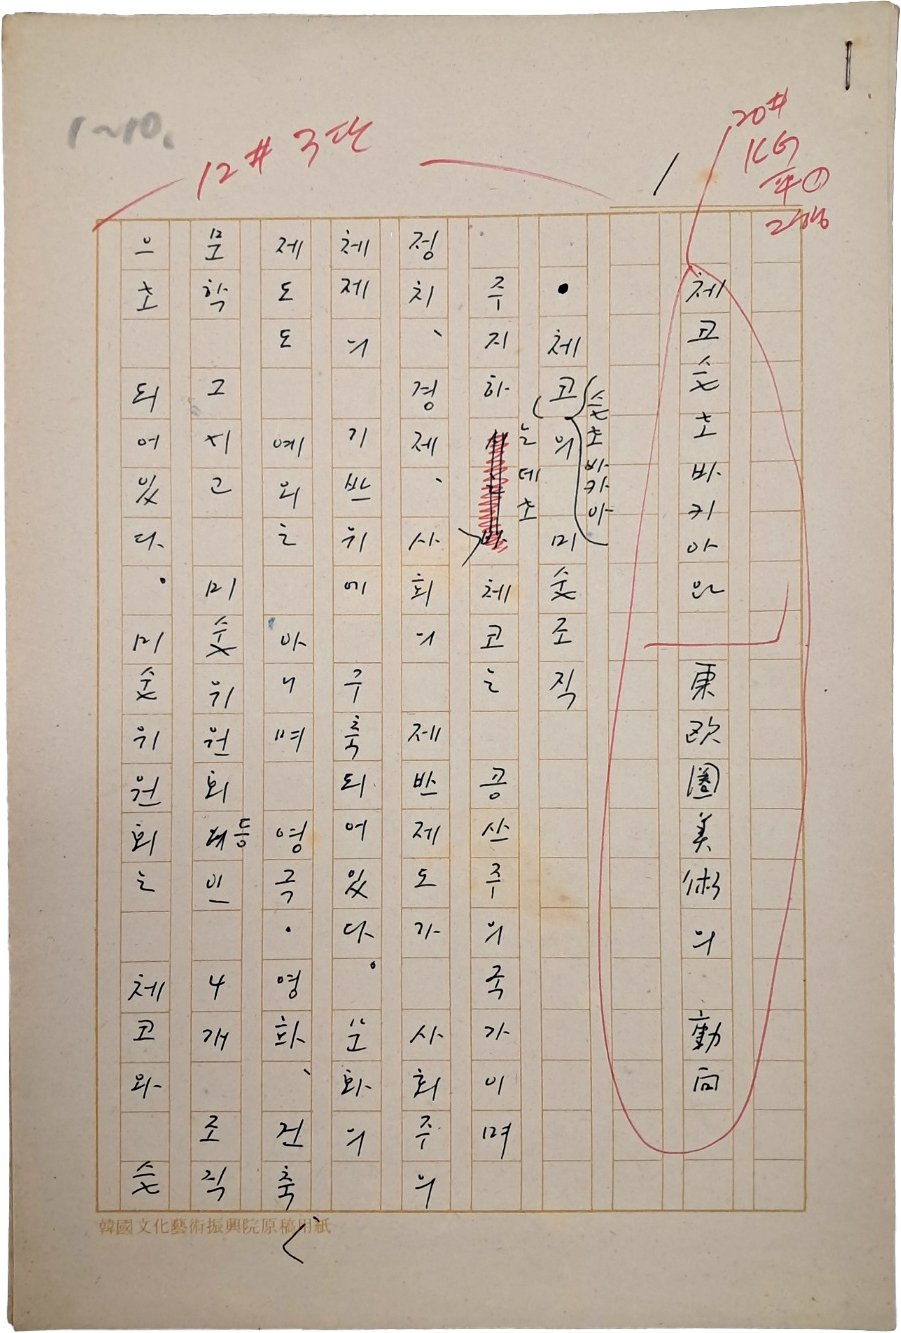 1~10.
12# 3단
20#
KG
平①
2행
1
체코슬로바키아와 東欧圈美術의 動向
● 체코의 미술조직
슬로바키아
주지하 체코는 공산주의 국가이며
는데로
정치、경제、사회의 제반제도가 사회주의
체제의 기반위에 구축되어있다. 문화의
제도도 예외는 아니며 영극·영화、건축、
문학 그리고 미술위원회 등 4개 조직
으로 되어있다. 미술위원회는 체코와 슬
韓國文化藝術振興院原稿用紙